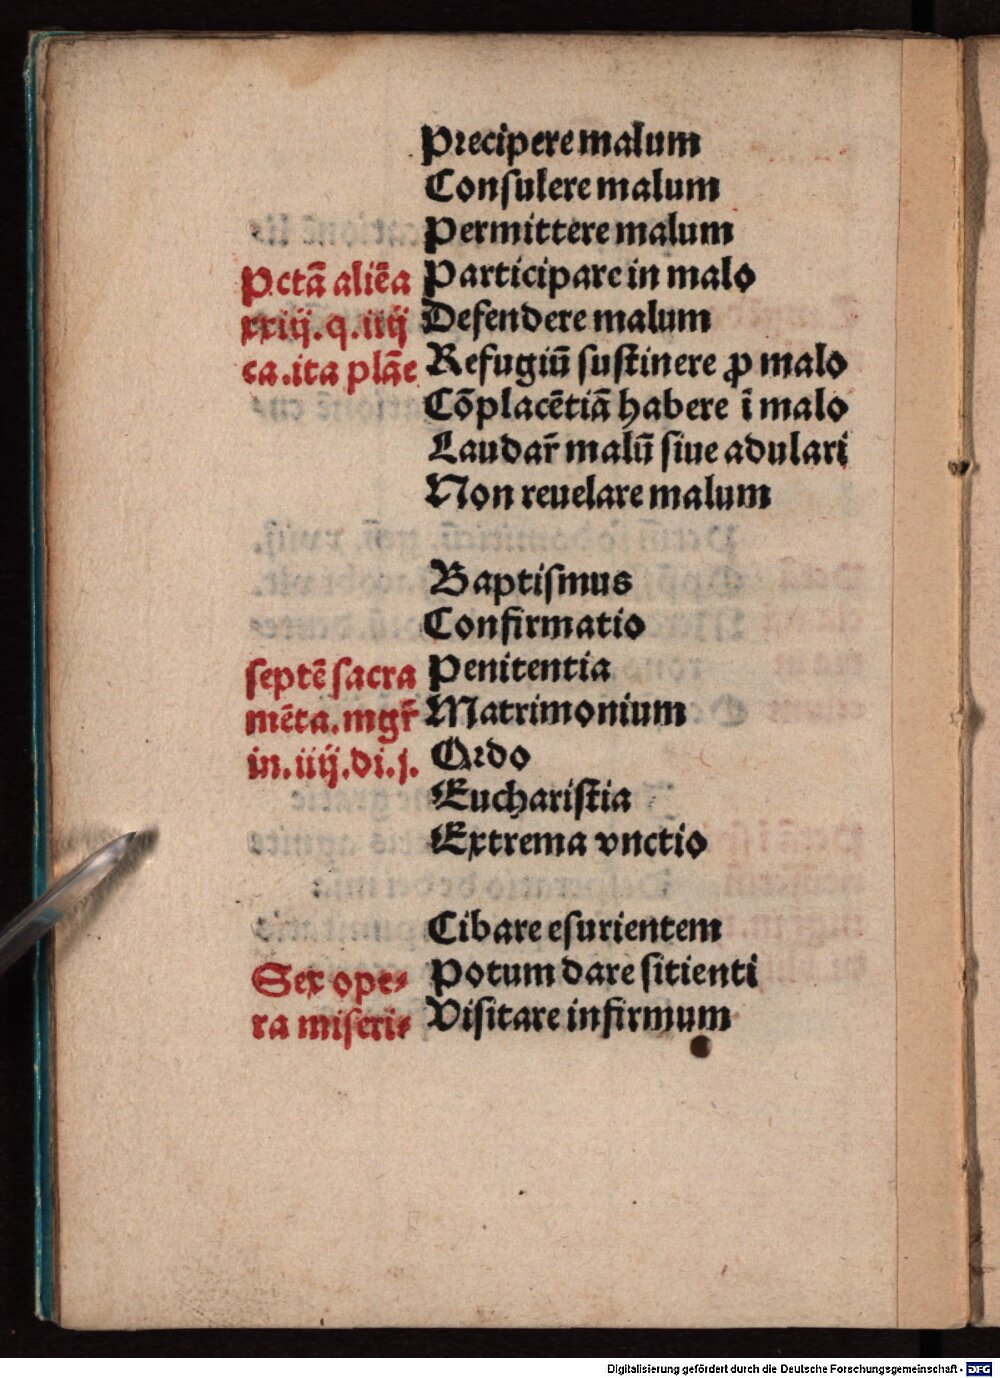 Precipere malum
Consulere malum
Permittere malum
Pctā aliēa Participare in malo
xxiij.q.iiij Defendere malum
ca.ita plāe Refugiū sustinere ꝓ malo
Cōplacētiā habere ī malo
Laudar̄ malū siue adulari
Non reuelare malum
Baptismus
Confirmatio
septē sacra Penitentia
mēta.mgr̄ Matrimonium
in.iiij.di.j. Ordo
Eucharistia
Extrema vnctio
Cibare esurientem
Sex ope⸗ Potum dare sitienti
ra miseri⸗ Visitare infirmum
Digitalisierung gefördert durch die Deutsche Forschungsgemeinschaft - DFG